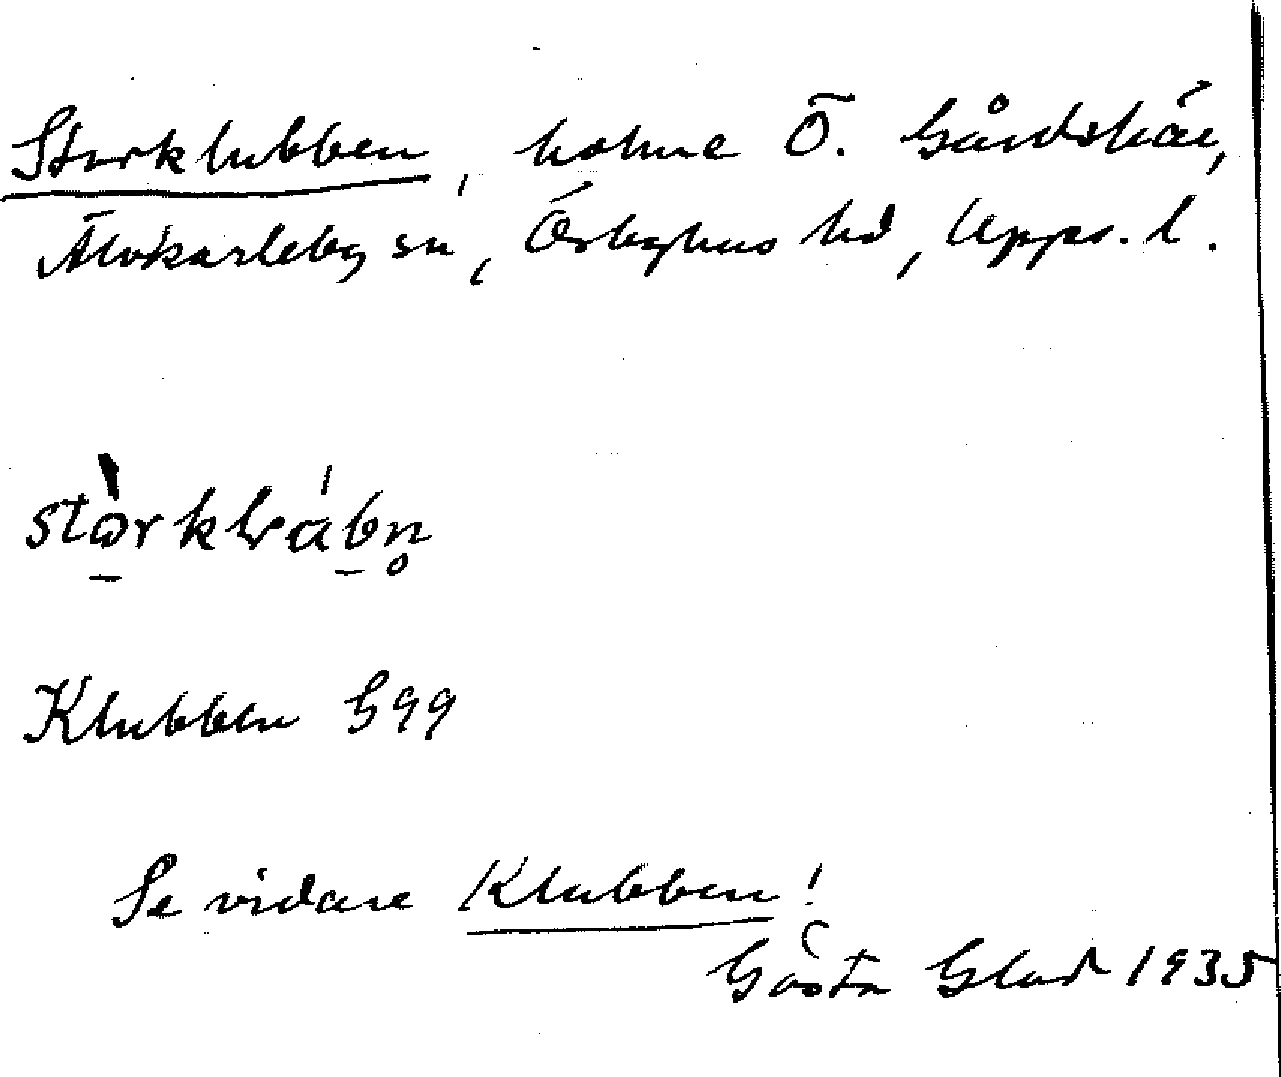 Storklubben, holme Ö. Gårdskär,
Älvkarleby sn, Örbyhus hd, Upps. l.
Klubben G99
Se vidare Klubben!
Gösta Glad 1935